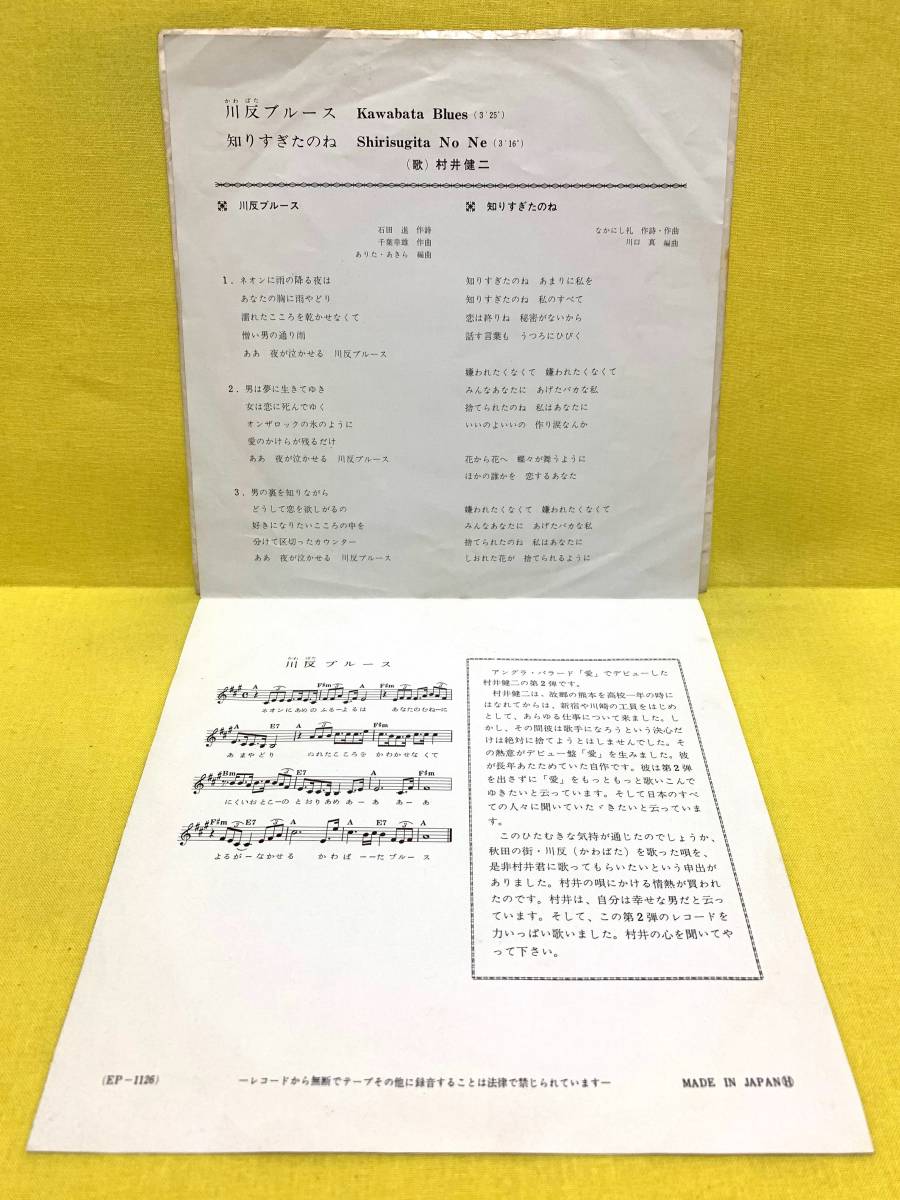 かわ ばた
川反ブルース Kawabata Blues (3'25")
知りすぎたのね Shirisugita No Ne (3'16")
(歌) 村井健二
川反ブルース
石田 進 作詩
千葉幸雄 作曲
ありた・あきら 編曲
1. ネオンに雨の降る夜は
あなたの胸に雨やどり
濡れたこころを乾かせなくて
憎い男の通り雨
ああ 夜が泣かせる 川反ブルース
2. 男は夢に生きてゆき
女は恋に死んでゆく
オンザロックの氷のように
愛のかけらが残るだけ
ああ 夜が泣かせる 川反ブルース
3. 男の裏を知りながら
どうして恋を欲しがるの
好きになりたいこころの中を
分けて区切ったカウンター
ああ 夜が泣かせる 川反ブルース
知りすぎたのね
なかにし礼 作詩・作曲
川口 真 編曲
知りすぎたのね あまりに私を
知りすぎたのね 私のすべて
恋は終りね 秘密がないから
話す言葉も うつろにひびく
嫌われたくなくて 嫌われたくなくて
みんなあなたに あげたバカな私
捨てられたのね 私はあなたに
いいのよいいの 作り涙なんか
花から花へ 蝶々が舞うように
ほかの誰かを 恋するあなた
嫌われたくなくて 嫌われたくなくて
みんなあなたに あげたバカな私
捨てられたのね 私はあなたに
しおれた花が 捨てられるように
かわ ばた
川反ブルース
A F♯m A
ネオンにあめの ふるーよるは あなたのむねーに
A E7 A F♯m
あまやどり ぬれたこころを かわかせなくて
Bm E7 A F♯m
にくいおとこーの とおりあめあー あ あーあ
F♯m E7 A E7 A
よるがーなかせる かわばーーたブルース
アングラ・バラード「愛」でデビューした
村井健二の第2弾です。
村井健二は、故郷の熊本を高校一年の時に
はなれてからは、新宿や川崎の工員をはじめ
として、あらゆる仕事について来ました。し
かし、その間彼は歌手になろうという決心だ
けは絶対に捨てようとはしませんでした。そ
の熱意がデビュー盤「愛」を生みました。彼
が長年あたためていた自作です。彼は第2弾
を出さずに「愛」をもっともっと歌いこんで
ゆきたいと云っています。そして日本のすべ
ての人々に聞いていたゞきたいと云っていま
す。
このひたむきな気持が通じたのでしょうか、
秋田の街・川反(かわばた)を歌った唄を、
是非村井君に歌ってもらいたいという申出が
ありました。村井の唄にかける情熱が買われ
たのです。村井は、自分は幸せな男だと云っ
ています。そして、この第2弾のレコードを
力いっぱい歌いました。村井の心を聞いてや
って下さい。
(EP-1126)
―レコードから無断でテープその他に録音することは法律で禁じられています―
MADE IN JAPAN Ⓗ